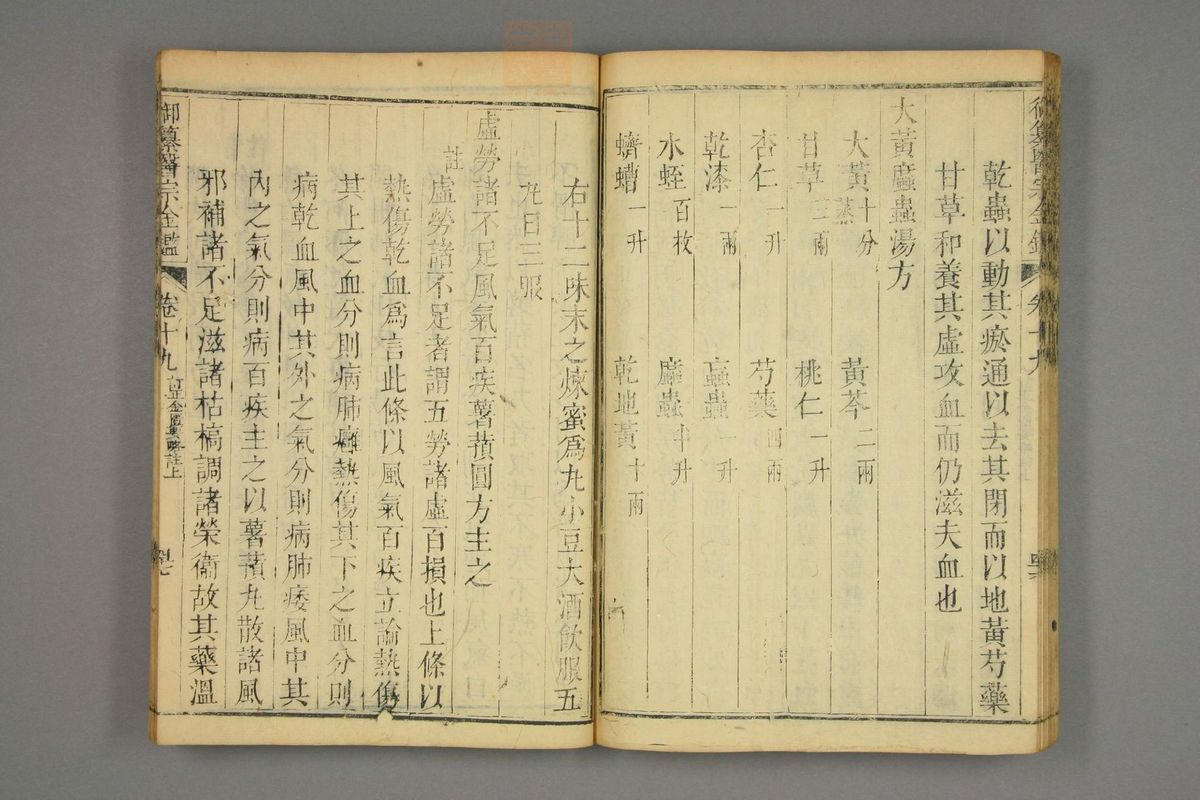 乾蟲以動其瘀通以去其閉而以地黃芍藥
甘草和養其虛攻血而仍滋夫血也
大黃䗪蟲湯方
大黃十分蒸 黃芩二兩
甘草三兩 桃仁一升
杏仁一升 芍藥四兩
乾漆一兩 蝱蟲一升
水蛭百枚 䗪蟲半升
蠐螬一升 乾地黃十兩
右十二味末之煉蜜爲丸小豆大酒飲服五
丸日三服
虛勞諸不足風氣百疾薯蕷圓方主之
註虛勞諸不足者謂五勞諸虛百損也上條以
熱傷乾血爲言此條以風氣百疾立論熱傷
其上之血分則病肺癰熱傷其下之血分則
病乾血風中其外之氣分則病肺痿風中其
內之氣分則病百疾主之以薯蕷丸散諸風
邪補諸不足滋諸枯槁調諸榮衞故其藥溫
御纂醫宗金鑑 卷十九 訂正金匱要略註上